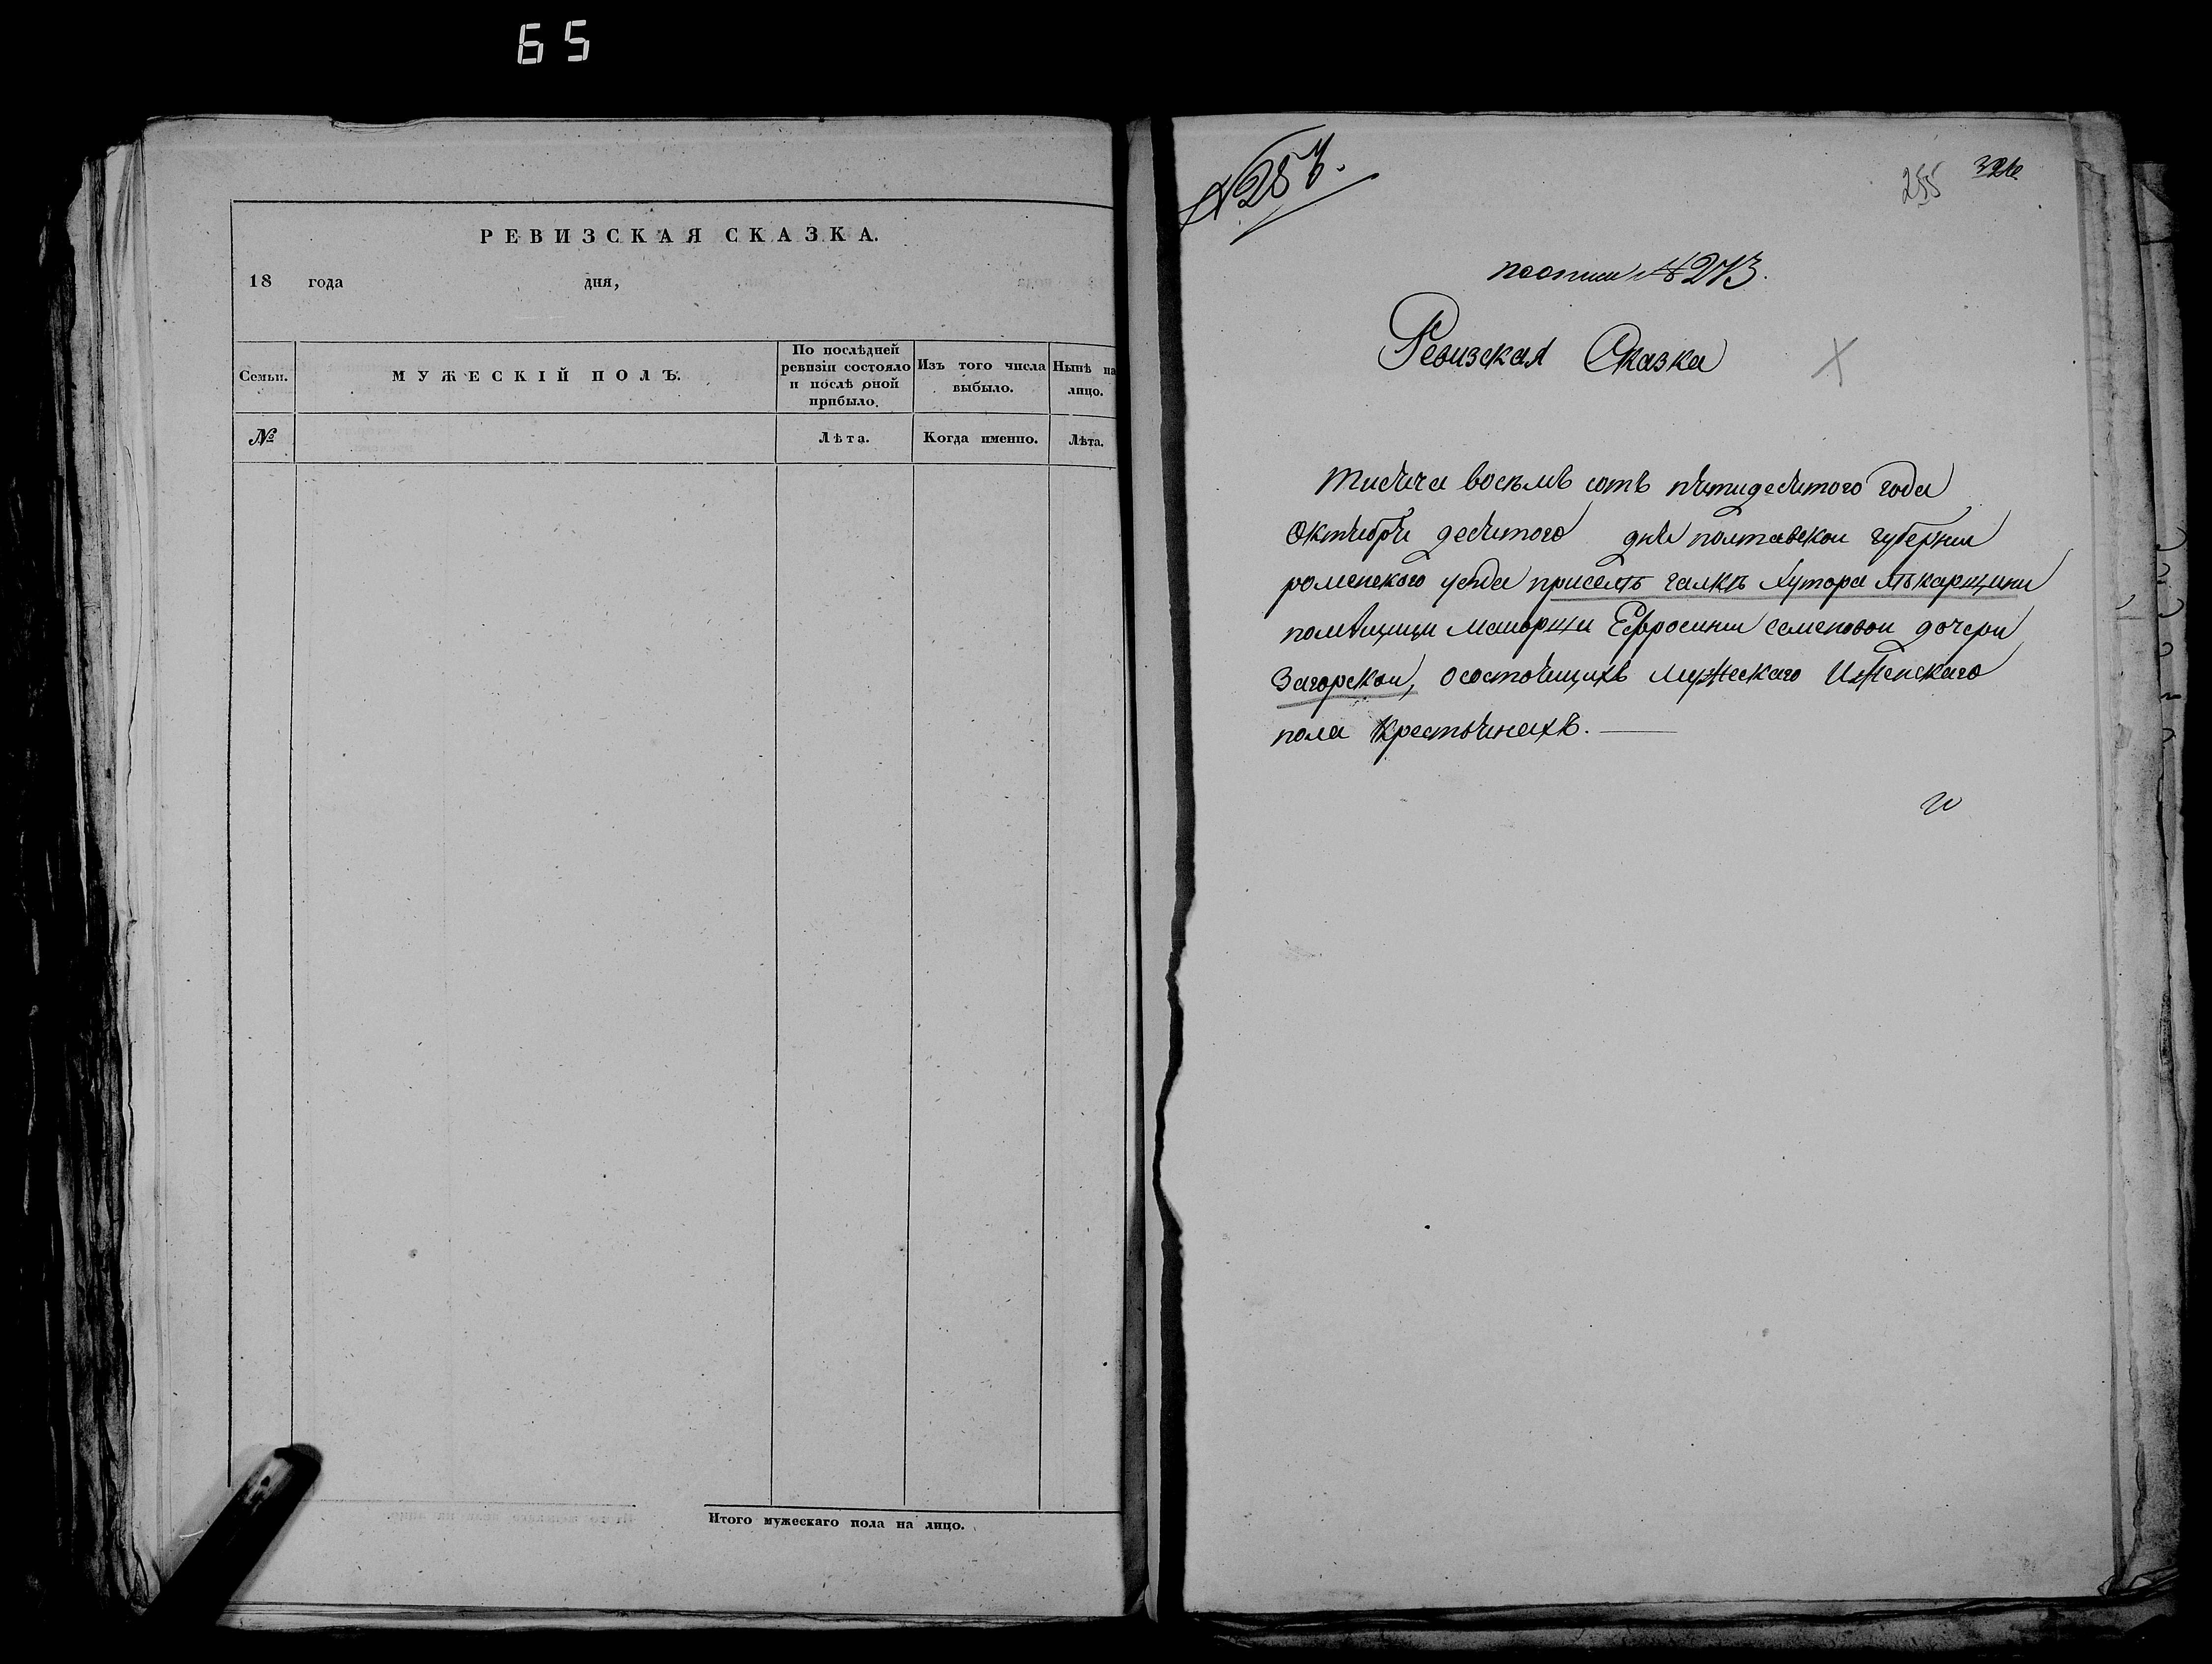 65
РЕВИЗСКАЯ СКАЗКА.
18 года дня,
Семьи.
МУЖЕСКІЙ ПОЛЪ.
По послѣдней ревизіи состояло и послѣ оной прибыло.
Изъ того числа выбыло.
Нынѣ на лицо.
№
Лѣта.
Когда именно.
Лѣта.
Итого мужескаго пола на лицо.
255
поописи № 273.
Ревизская Сказка
тисяча восьмъ сотъ пятидесятого года
Октября десятого дня полтавскои губернии
роменского уезда приселѣ галкѣ хутора
помѣщици маіорши Ефросинии семеновои дочери
Загорскои, осостоящихъ мужескаго Иженскаго
пола Крестьянахъ.